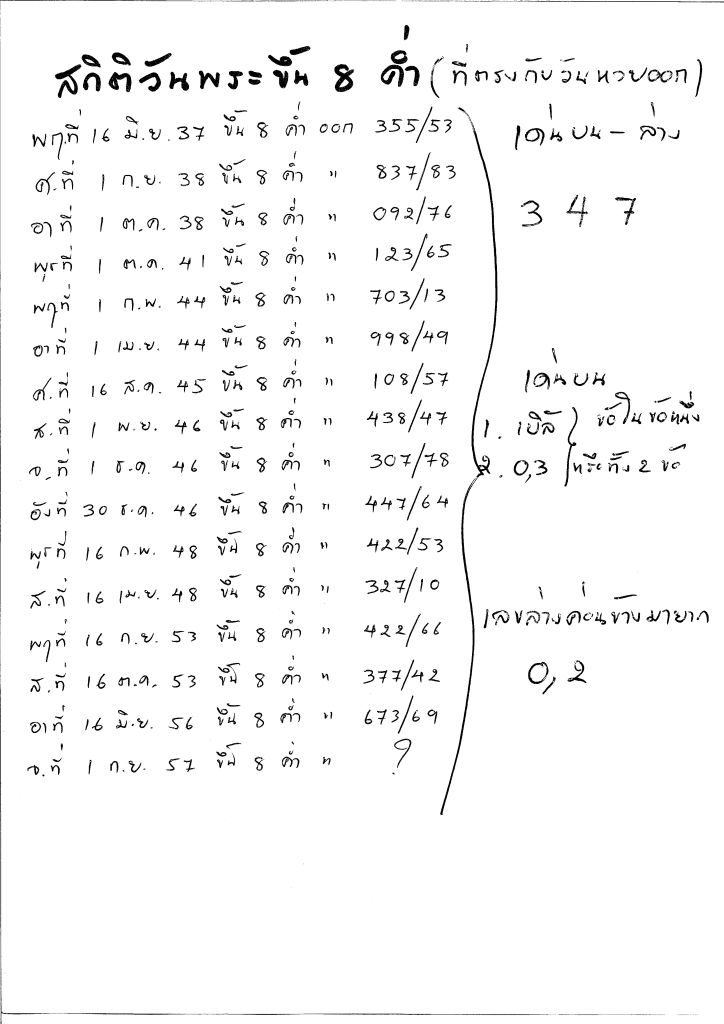 สถิติวันพระขึ้น 8 ค่ำ (ที่ตรงกับวันหวยออก)
พฤ.ที่ 16 มิ.ย. 37 ขึ้น 8 ค่ำ ออก 355/53
ศ.ที่ 1 ก.ย. 38 ขึ้น 8 ค่ำ " 837/83
อา.ที่ 1 ต.ค. 38 ขึ้น 8 ค่ำ " 092/76
พุธที่ 1 ต.ค. 41 ขึ้น 8 ค่ำ " 123/65
พฤที่ 1 ก.พ. 44 ขึ้น 8 ค่ำ " 703/13
อาที่ 1 เม.ย. 44 ขึ้น 8 ค่ำ " 998/49
ศ.ที่ 16 ส.ค. 45 ขึ้น 8 ค่ำ " 108/57
ส.ที่ 1 พ.ย. 46 ขึ้น 8 ค่ำ " 438/47
จ.ที่ 1 ธ.ค. 46 ขึ้น 8 ค่ำ " 307/78
อังที่ 30 ธ.ค. 46 ขึ้น 8 ค่ำ " 447/64
พุธที่ 16 ก.พ. 48 ขึ้น 8 ค่ำ " 422/53
ส.ที่ 16 เม.ย. 48 ขึ้น 8 ค่ำ " 327/10
พฤที่ 16 ก.ย. 53 ขึ้น 8 ค่ำ " 422/66
ส.ที่ 16 ต.ค. 53 ขึ้น 8 ค่ำ " 377/42
อาที่ 16 มิ.ย. 56 ขึ้น 8 ค่ำ " 673/69
จ.ที่ 1 ก.ย. 57 ขึ้น 8 ค่ำ " ?
เด่นบน - ล่าง
3 4 7
เด่นบน
1. เบิ้ล ข้อใดข้อหนึ่ง
2. 0,3 หรือทั้ง 2 ข้อ
เลขล่างค่อนข้างมายาก
0,2